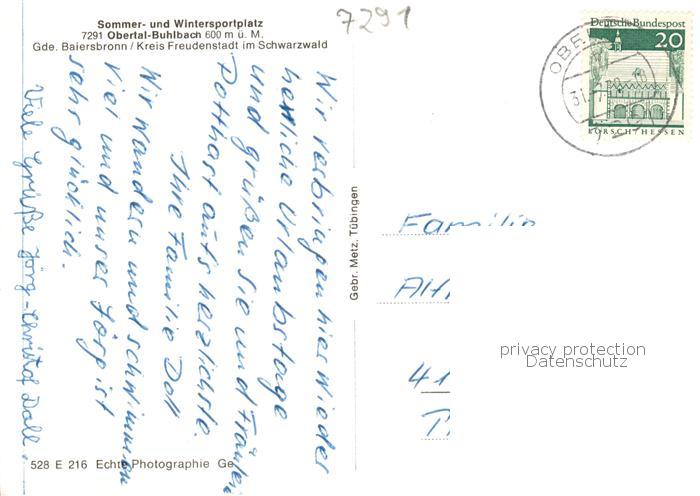 Sommer- und Wintersportplatz
7291 Obertal-Buhlbach 600 m ü. M.
Gde. Baiersbronn / Kreis Freudenstadt im Schwarzwald
7291
Deutsche Bundespost
20
LORSCH/HESSEN
OBE
31.7.
Wir verbringen hier wieder
herrliche Urlaubstage
und grüßen Sie und Fräulein
Potthast auf's herzlichste.
Ihre Familie Doll
Wir wandern und schwimmen
viel und unser Jörg ist
sehr glücklich.
Viele Grüße Jörg-Christof Doll.
Gebr. Metz, Tübingen
Familie
41
528 E 216 Echte Photographie Ge
privacy protection
Datenschutz